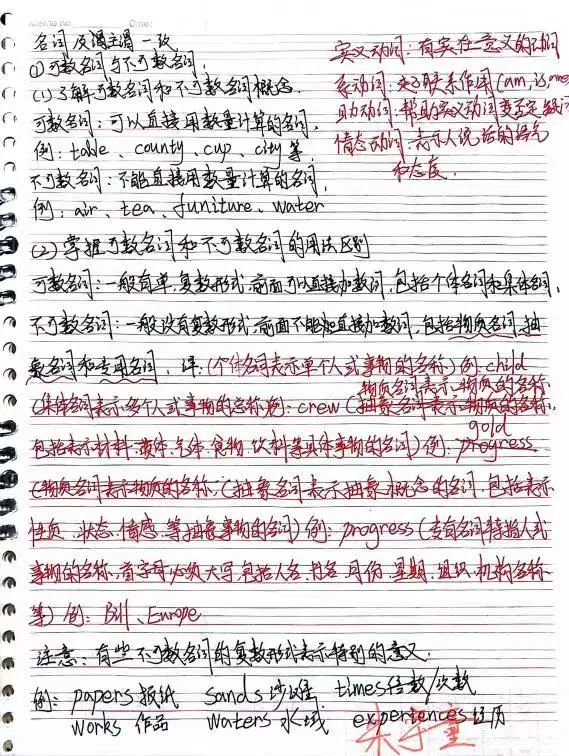 名词及谓主谓一致
(1)可数名词与不可数名词.
(1)了解可数名词和不可数名词概念.
可数名词:可以直接用数量计算的名词.
例:table、county、cup、city等.
不可数名词:不能直接用数量计算的名词.
例:air、tea、funiture、water
实义动词:有实在意义的动词
系动词:起联系作用(am,is,are
助动词:帮助实义动词变否定疑问
情态动词:表示人说话的语气
和态度.
(2)掌握可数名词和不可数名词的用法区别
可数名词:一般有单.复数形式,前面可以直接加数词,包括个体名词和集体名词,
不可数名词:一般没有复数形式,前面不能直接加数词,包括物质名词,抽
象名词和专用名词.详:(个体名词表示单个人或事物的名称)例:child
物质名词表示物质的名称
(集体名词表示多个人或事物的总称)例:crew(抽象名词表示物质的名称,
gold
包括表示材料.液体.气体.食物.饮料等具体事物的名词)例:progress
(物质名词表示物质的名称,(抽象名词表示抽象概念的名词.包括表示
性质.状态.情感.等抽象事物的名词)例:progress(专有名词特指人或
事物的名称,首字母必须大写,包括人名.书名.月份.星期.组织.机构名称
等)例:Bill、Europe
注意:有些不可数名词的复数形式表示特别的意义.
例:papers报纸 sands沙漠 times倍数/次数
works 作品 waters 水域 experiences经历